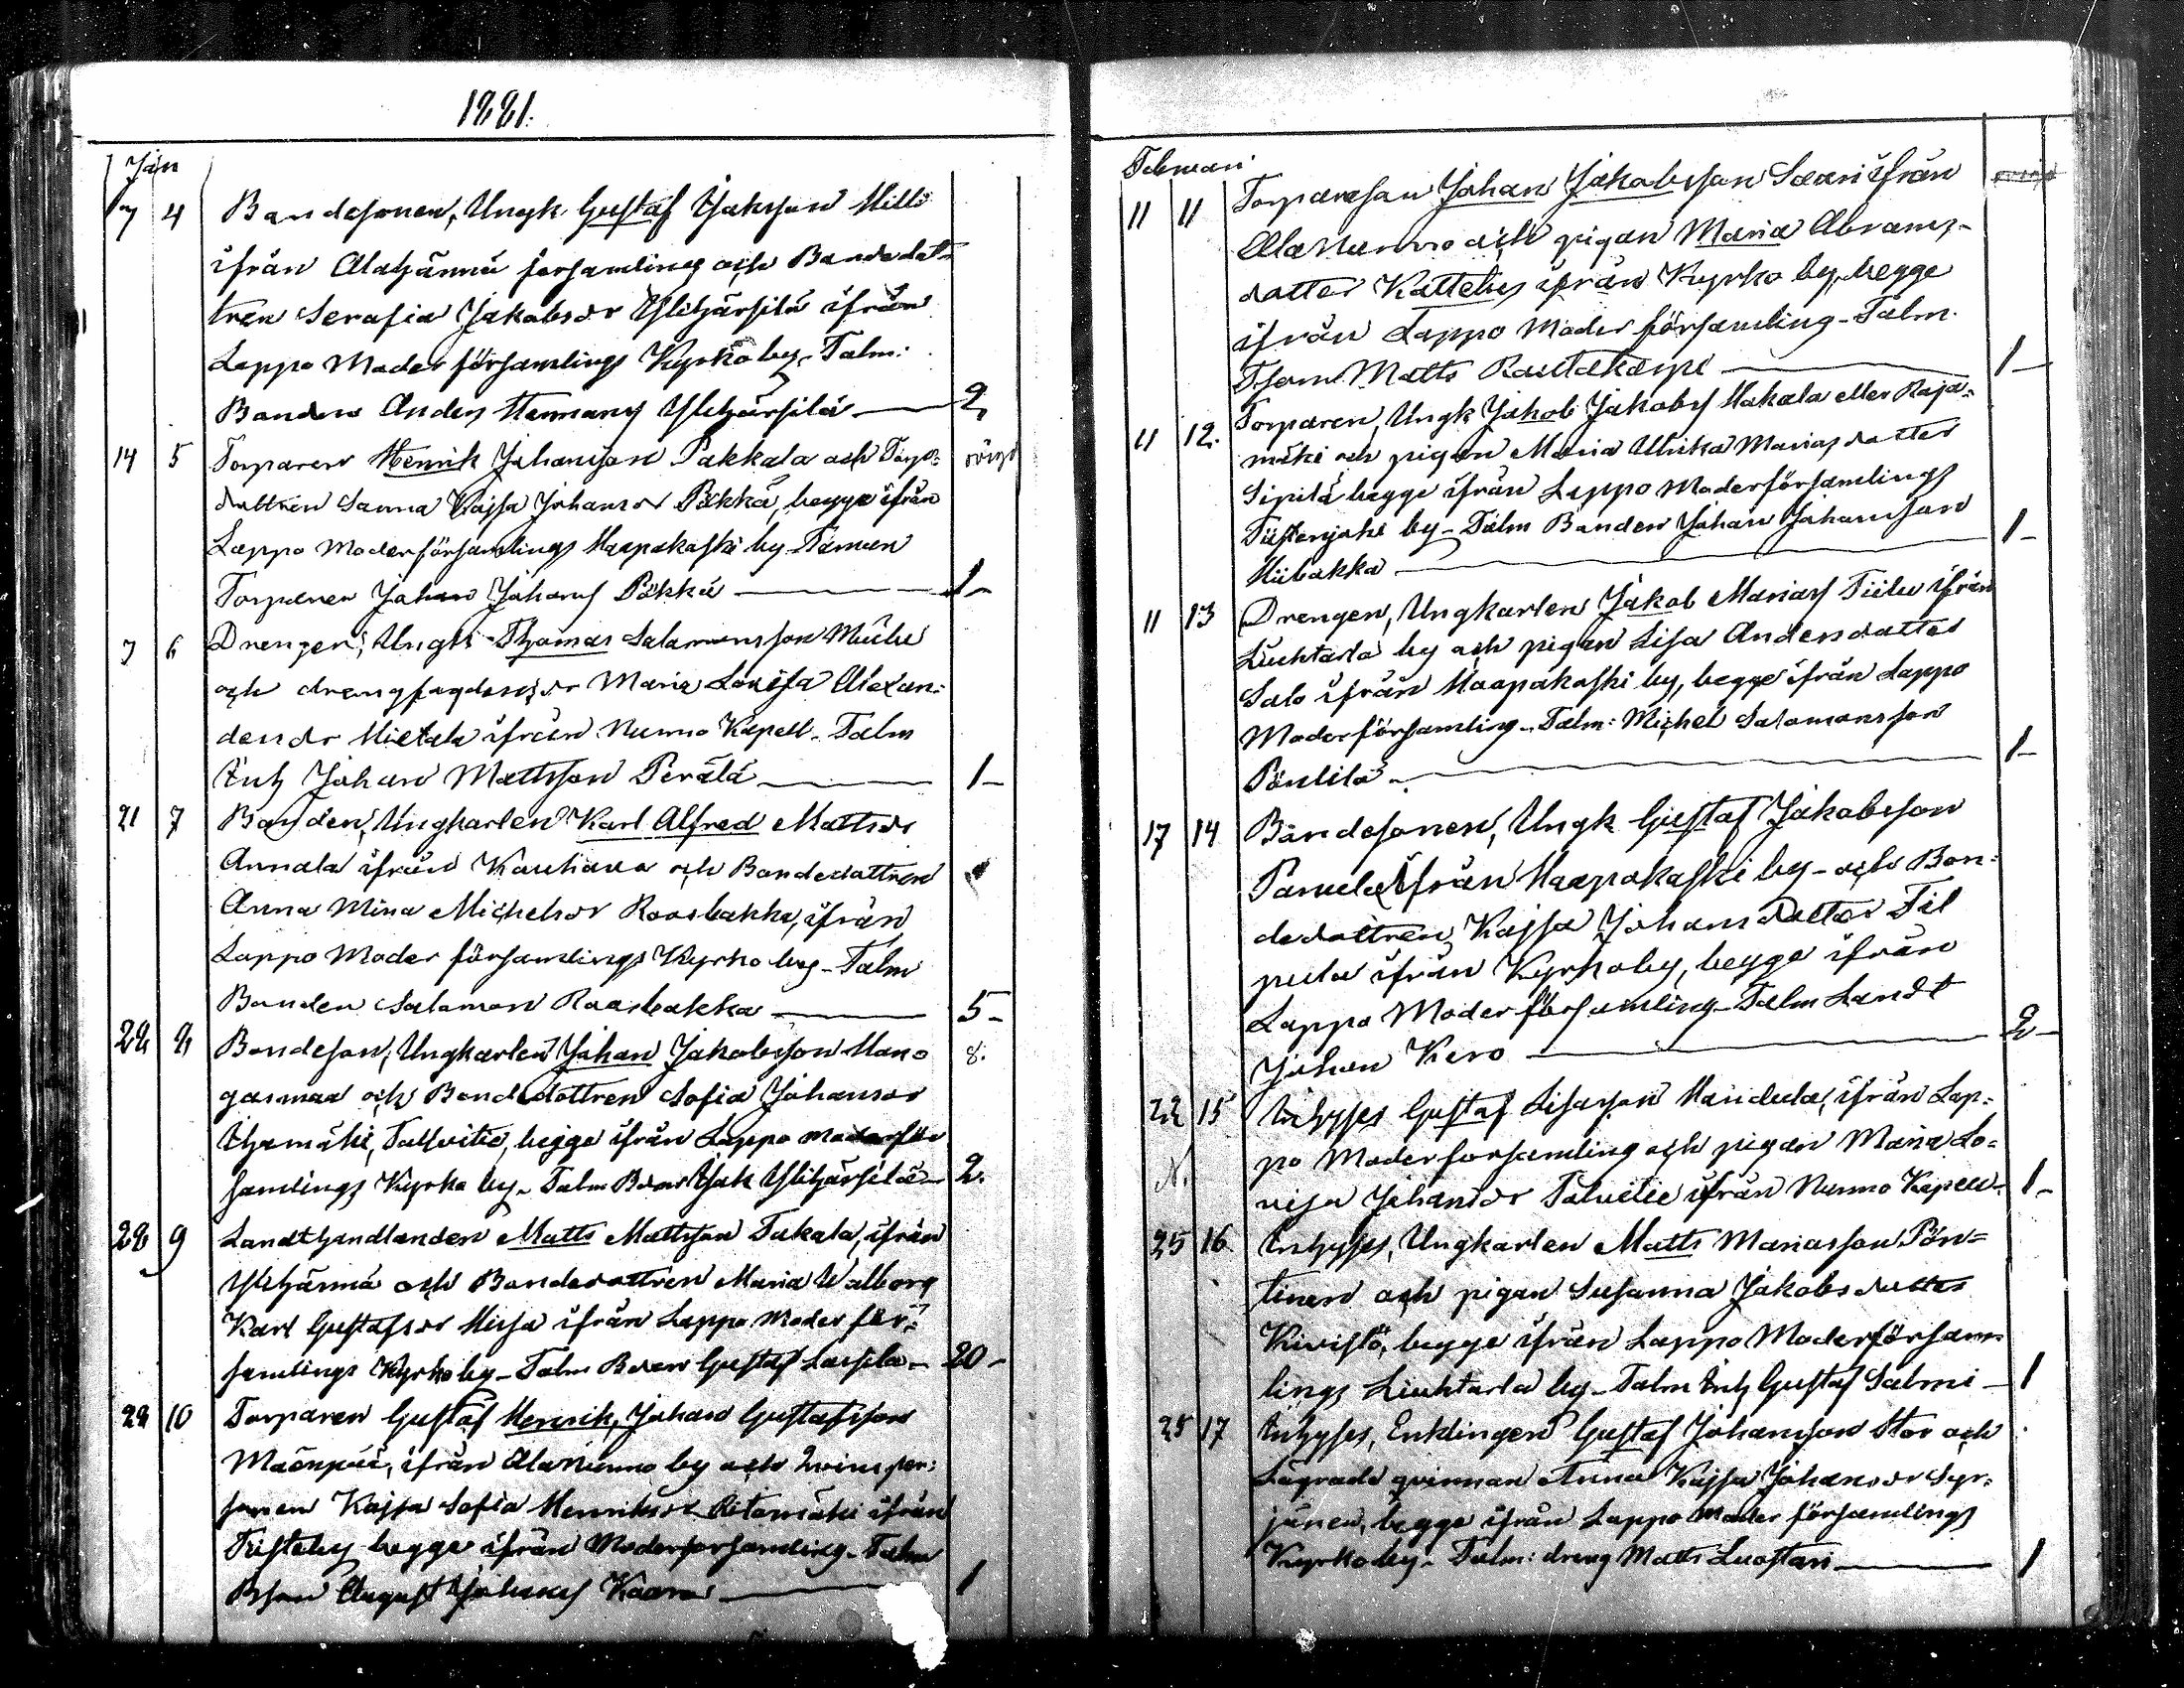 1881.
Jan
7 4 Bondesonen, Ungk. Gustaf Jaksson Hilli
ifrån Alahärmä forsamling och Bondedot-
tren Serafia Jakobsdr Ylihärsilä ifrån
Lappo Moder församlings Kyrkoby. Talm:
Bonden Anders Hermans Ylihärsilä — 2,
14 5 Torparen Henrik Johansson Pakkala och Torp=
dottren Sanna Kajsa Johansdr Pökkä, begge ifrån
Lappo Moderförsamlings Haapakoski by. Taman
Torparen Johan Johans Pökkä — 1 –
7 6 Drengen, Ungk. Thomas Salamonsson
och drengfogdens dr Maria Lovisa Alexan=
dersdr Mietala ifrån Nurmo Kapell. Talm
Inh Johan Mattsson Perälä — 1 –
21 7 Bonden, Ungkarlen Karl Alfred Mattsson
Annala ifrån Kauhava och Bondedottren
Anna Mina Michelsdr Roosbakka, ifrån
Lappo Moder församlings Kyrko by – Talm
Bonden Salomon Raasbakka — 5 –
28 8 Bondeson, Ungkarlen Johan Jakobsson Hano 8.
gasmaa och Bondedottren Sofia Johansdr
Talvitie, begge ifrån Lappo Moderför
samlings Kyrko by – Talm Bdn Jak Ylihärsilä – 2.
28 9 Landthandlanden Matts Mattsson Takala, ifrån
Ylihärmä och Bondedottren Maria Walborg
Karl Gustafsdr Hirsa ifrån Lappo Moder för=
samlings Kyrko by – Talm Gustaf Lassila – 20 –
28 10 Torparen Gustaf Henrik, Johan Gustafsson
Mäenpää, ifrån AlaNurmo by och Qvinsper=
sonen Kajsa Sofia Henriksdr Ritamäki ifrån
Tiisteby begge ifrån Moderforsamling – Talm
Bson August Johans Kaara — 1
Februari
11 11 Torpareson Johan Jakobsson Saari ifrån
AlaNurmo och pigan Maria Abrams-
dotter Katteby ifrån Kyrko by, begge
ifrån Lappo Moder församling – Talm.
Tson Matts Rautakorpi — 1 –
11 12. Torparen, Ungk Jakob Jakobs Hakala eller Raja=
mäki och pigan Maria Ulrika Mariasdotter
Sipilä begge ifrån Lappo Moderförsamlings
Tiistenjoki by – Talm Bonden Johan Johansson
Hiibakka — 1 –
11 13 Drengen, Ungkarlen Jakob Marias Tiitu ifrån
Liuhtarla by och pigan Lisa Andersdotter
Salo ifrån Haapakoski by, begge ifrån Lappo
Moderförsamling – Talm: Michel Salomonsson
Pöntilä — 1 –
17 14 Bondesonen, Ungk Gustaf Jakobsson
Panula ifrån Haapakoski by – och Bon=
dedottren, Kajsa Johansdotter Fil
pula ifrån Kyrkoby, begge ifrån
Lappo Moder församling – Talm Landt
Johan Kero — 2 –
22 15 Inhyses Gustaf Lisasson Handula, ifrån Lap=
po Moder forsamling och pigan Maria Lo=
N. visa Johansdr Talvitie ifrån Nurmo Kapell – 1 –
25 16 Inhyses, Ungkarlen Matts Mariasson Pön=
tinen och pigan Susanna Jakobsdotter
Kivistö, begge ifrån Lappo Moderförsam
lings Liuhtarla by – Talm Inh Gustaf Salmi – 1
25 17 Inhyses, Enklingen Gustaf Johansson Stor och
Lägrade qvinnan Anna Kajsa Johansdr Syr=
jänen, begge ifrån Lappo Moder församlings
Kyrko by – Talm: dreng Matts Luostari — 1